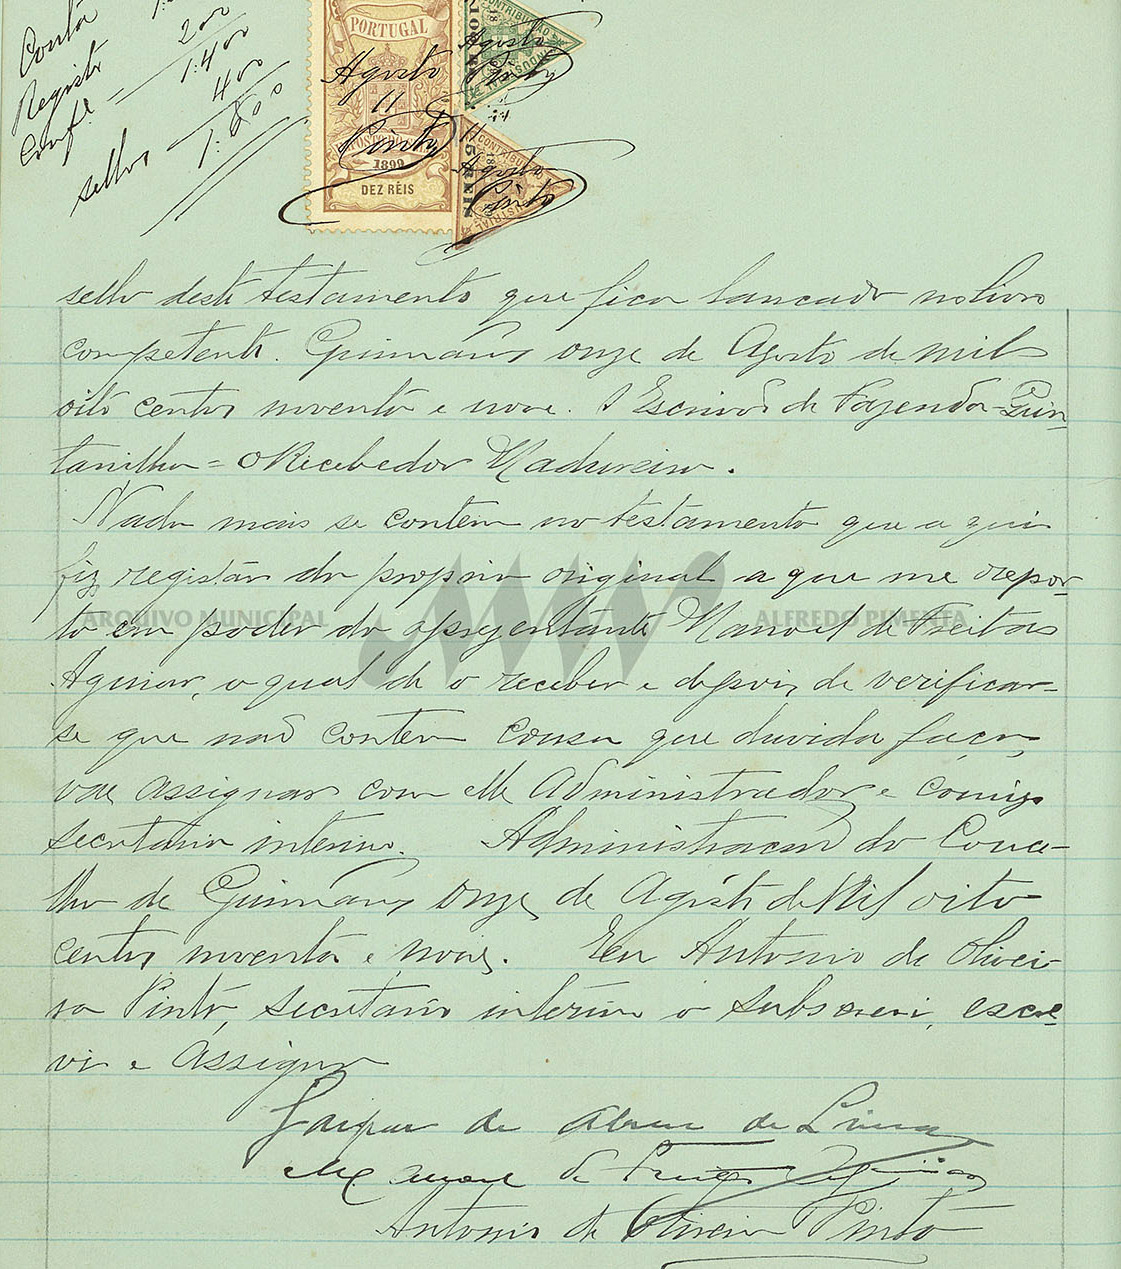 Conta
200
Registo
1:400
Conf.e
400
sellos
1:800
PORTUGAL
Agosto
11
Pinto
1899
DEZ RÉIS
CONTRIBUIÇÃO
INDUSTRIAL
Agosto
Pinto
11
CONTRIBUIÇÃO
INDUSTRIAL
15 REIS
Agosto
Pinto
sello deste testamento que fica lancado no livro
competente. Guimarães onze de Agosto de mil
oito centos noventa e nove. O Escrivão de Fazenda Quin-
tanilha = O Recebedor Madureira.
Nada mais se contem no testamento que aqui
fiz registar do proprio original a que me repor-
to em poder do apresentante Manoel de Freitas
Aguiar, o qual de o receber e depois de verificar-
se que não contem cousa que duvida faça,
vae assignar com elle Administrador e comigo
secretario interino. Administracão do Conce-
lho de Guimarães onze de Agosto de Mil oito
centos noventa e nove. Eu Antonio de Olivei-
ra Pinto, secretario interino o subscrevi, escre-
vi e assigno
Gaspar de Abreu de Lima
Manoel de Freitas Aguiar
Antonio de Oliveira Pinto
ARQUIVO MUNICIPAL
ALFREDO PIMENTA